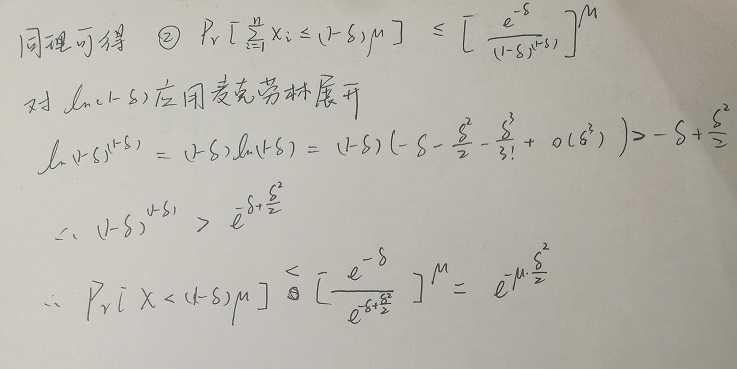 同理可得 ② Pr[∑_{i=1}^{n} Xi ≤ (1-δ)μ] ≤ [e^{-δ} / (1-δ)^{(1-δ)}]^μ
对 ln(1-δ) 应用麦克劳林展开
ln(1-δ)^{(1-δ)} = (1-δ)ln(1-δ) = (1-δ)(-δ - δ²/2 - δ³/3! + o(δ³)) > -δ + δ²/2
∴ (1-δ)^{(1-δ)} > e^{-δ+δ²/2}
∴ Pr[X < (1-δ)μ] < [e^{-δ} / e^{-δ+δ²/2}]^μ = e^{-μ·δ²/2}